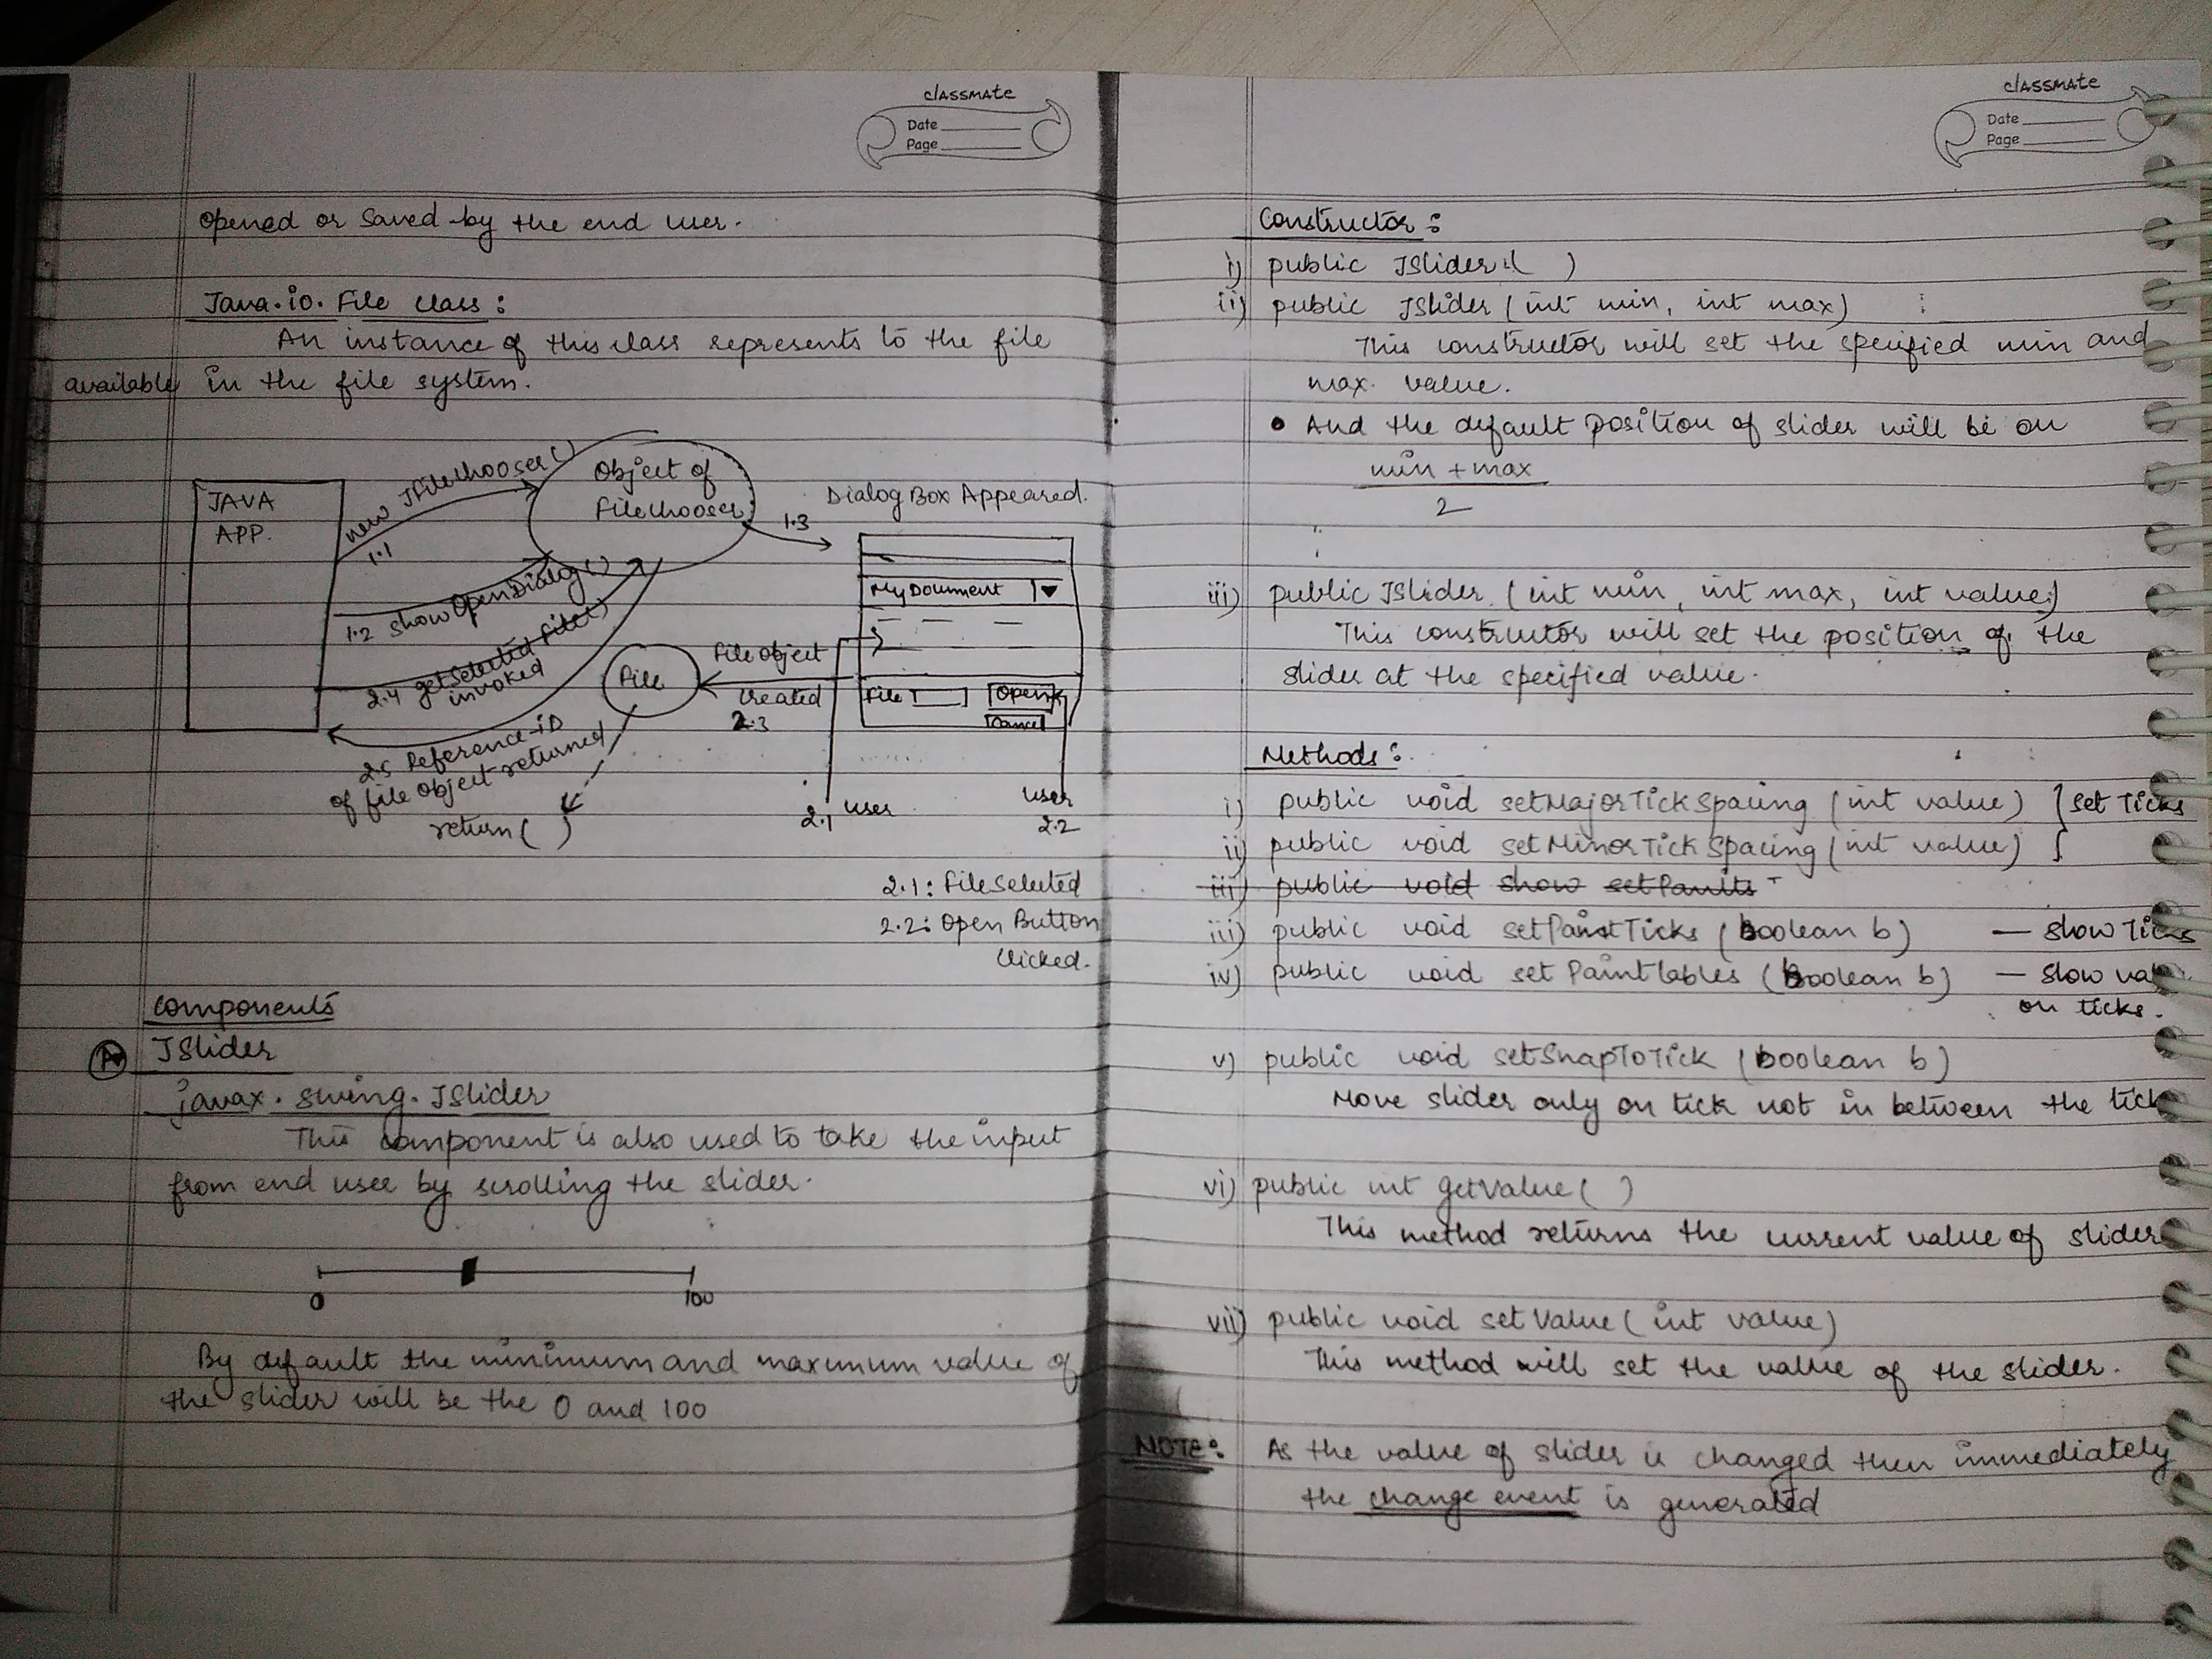 classmate
Date
Page
opened or saved by the end user.
Java.io.File class:
An instance of this class represents to the file
available in the file system.
JAVA
APP.
new JFileChooser()
1.1
Object of
FileChooser
1.3
Dialog Box Appeared.
1.2 showOpenDialog()
My Document
2.4 getSelected File()
invoked
File
File object
created
2.3
File
Open
Cancel
2.5 Reference-ID
of file object returned
return( )
2.1 user
user
2.2
2.1: File Selected
2.2: Open Button
Clicked.
Components
JSlider
javax.swing.JSlider
This component is also used to take the input
from end user by scrolling the slider.
0
100
By default the minimum and maximum value of
the slider will be the 0 and 100
classmate
Date
Page
Constructor:
i) public JSlider( )
ii) public JSlider (int min, int max)
This constructor will set the specified min and
max. value.
• And the default position of slider will be on
min + max
2
iii) public JSlider (int min, int max, int value)
This constructor will set the position of the
slider at the specified value.
Methods:
i) public void setMajorTickSpacing (int value) } set Ticks
ii) public void setMinorTickSpacing (int value) }
iii) public void show setPaints
iii) public void setPaintTicks (boolean b) — show Ticks
iv) public void setPaintLables (boolean b) — show
on ticks.
v) public void setSnapToTick (boolean b)
Move slider only on tick not in between the tick
vi) public int getValue( )
This method returns the current value of slider
vii) public void setValue( int value)
This method will set the value of the slider.
NOTE: As the value of slider is changed then immediately
the change event is generated